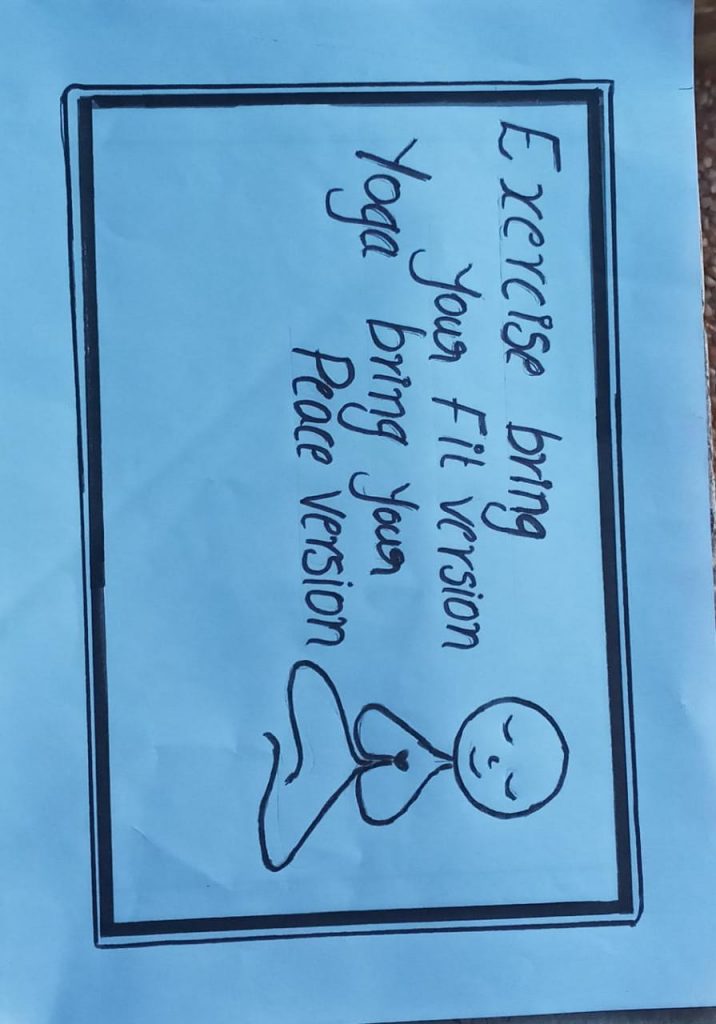 Exercise bring
your Fit version
Yoga bring your
Peace version